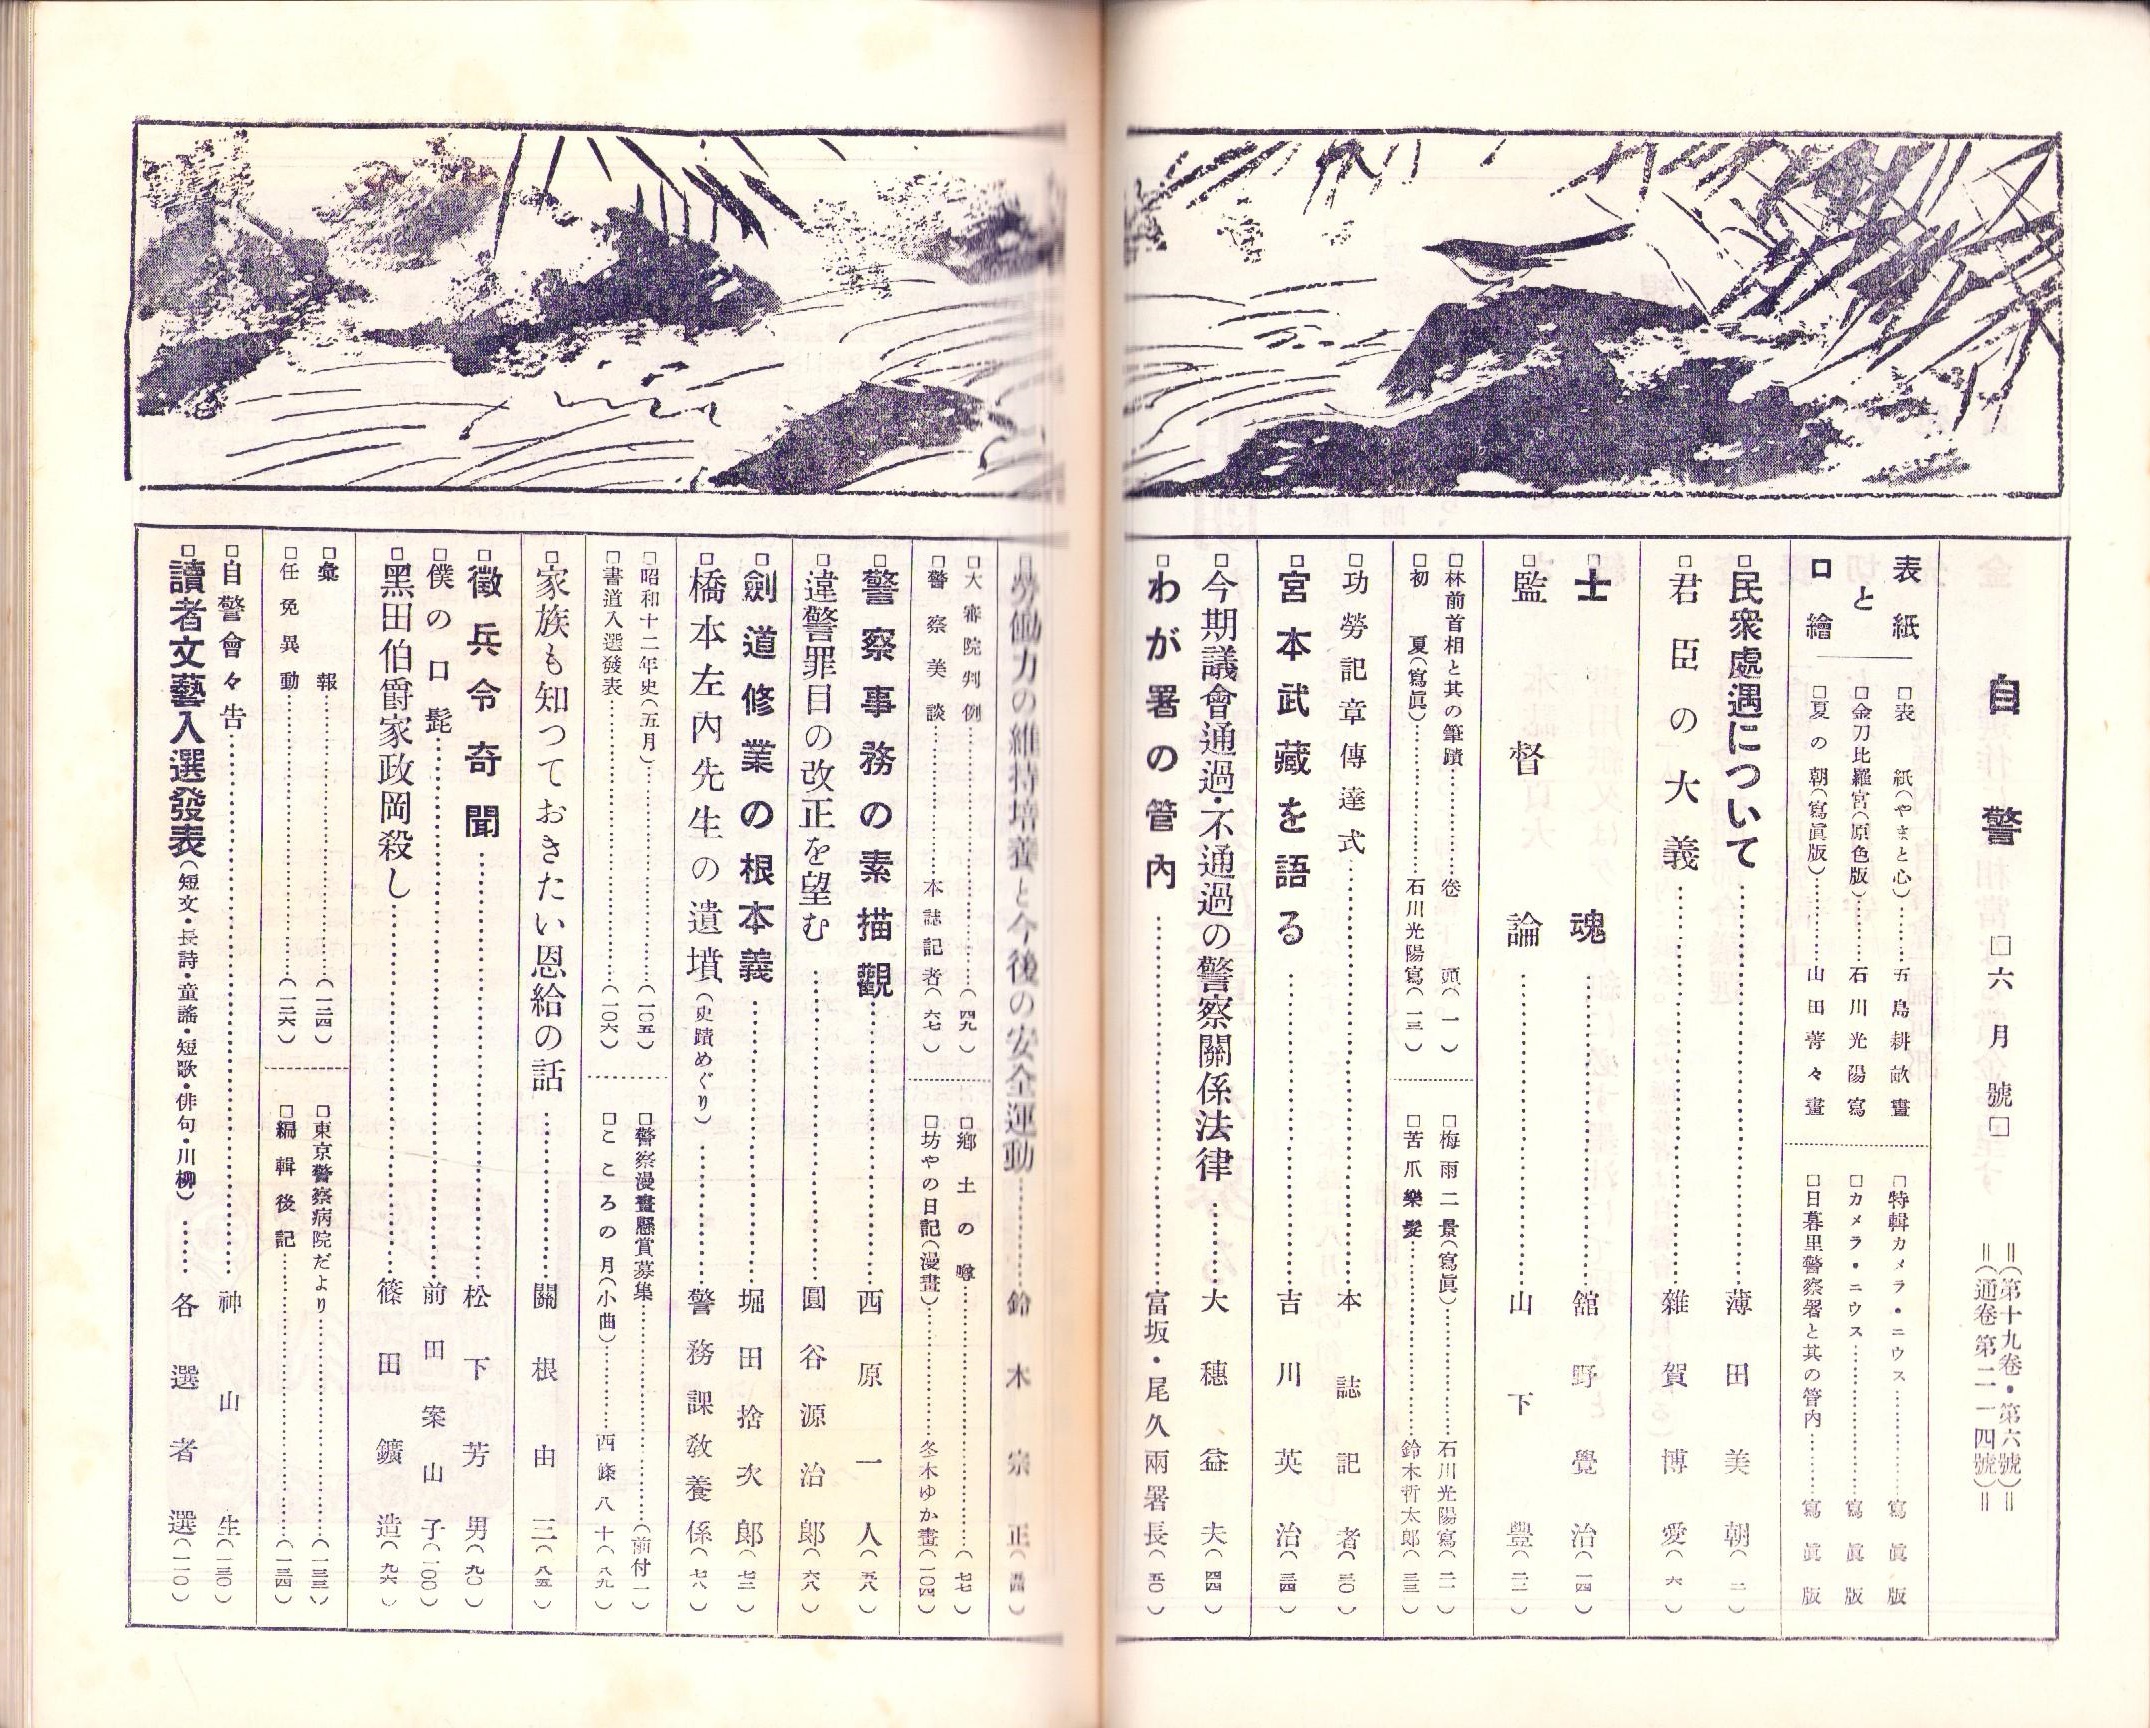 自警 □六月號□ ＝(第十九卷・第六號)＝
＝(通卷第二一四號)＝
表紙と口繪
□表紙(やまと心)……五島耕畝畫
□金刀比羅宮(原色版)……石川光陽寫
□夏の朝(寫眞版)……山田菁々畫
□特輯カメラ・ニウス……寫眞版
□カメラ・ニウス……寫眞版
□日暮里警察署と其の管内……寫眞版
□民衆處遇について……薄田美朝(二)
□君臣の大義……雜賀博愛(六)
□士魂……舘野覺治(一四)
□監督論……山下豐(二二)
□林前首相と其の筆蹟……卷頭(一)
□初夏(寫眞)……石川光陽寫(一三)
□梅雨二景(寫眞)……石川光陽寫(二一)
□苦爪樂髮……鈴木哲太郎(三三)
□功勞記章傳達式……本誌記者(三〇)
□宮本武藏を語る……吉川英治(三四)
□今期議會通過・不通過の警察關係法律……大穗益夫(四四)
□わが署の管内……富坂・尾久兩署長(五〇)
□勞働力の維持培養と今後の安全運動……鈴木宗正
□大審院判例……(四九)
□警察美談……本誌記者(六七)
□鄕土の噂……(七七)
□坊やの日記(漫畫)……冬木ゆか畫(一〇四)
□警察事務の素描觀……西原一人(五八)
□違警罪目の改正を望む……圓谷源治郎(六八)
□劍道修業の根本義……堀田捨次郎(七二)
□橋本左内先生の遺墳(史蹟めぐり)……警務課敎養係(七八)
□昭和十二年史(五月)……(一〇五)
□書道入選發表……(一〇六)
□警察漫畫懸賞募集……(前付一)
□こころの月(小曲)……西條八十(八九)
□家族も知つておきたい恩給の話……關根由三(八五)
□徵兵令奇聞……松下芳男(九〇)
□僕の口髭……前田案山子(一〇〇)
□黑田伯爵家政岡殺し……篠田鑛造(九六)
□彙報……(一二四)
□任免異動……(一二六)
□東京警察病院だより……(一三三)
□編輯後記……(一三四)
□自警會々告……神山生(一三〇)
□讀者文藝入選發表(短文・長詩・童謠・短歌・俳句・川柳)……各選者選(一一〇)